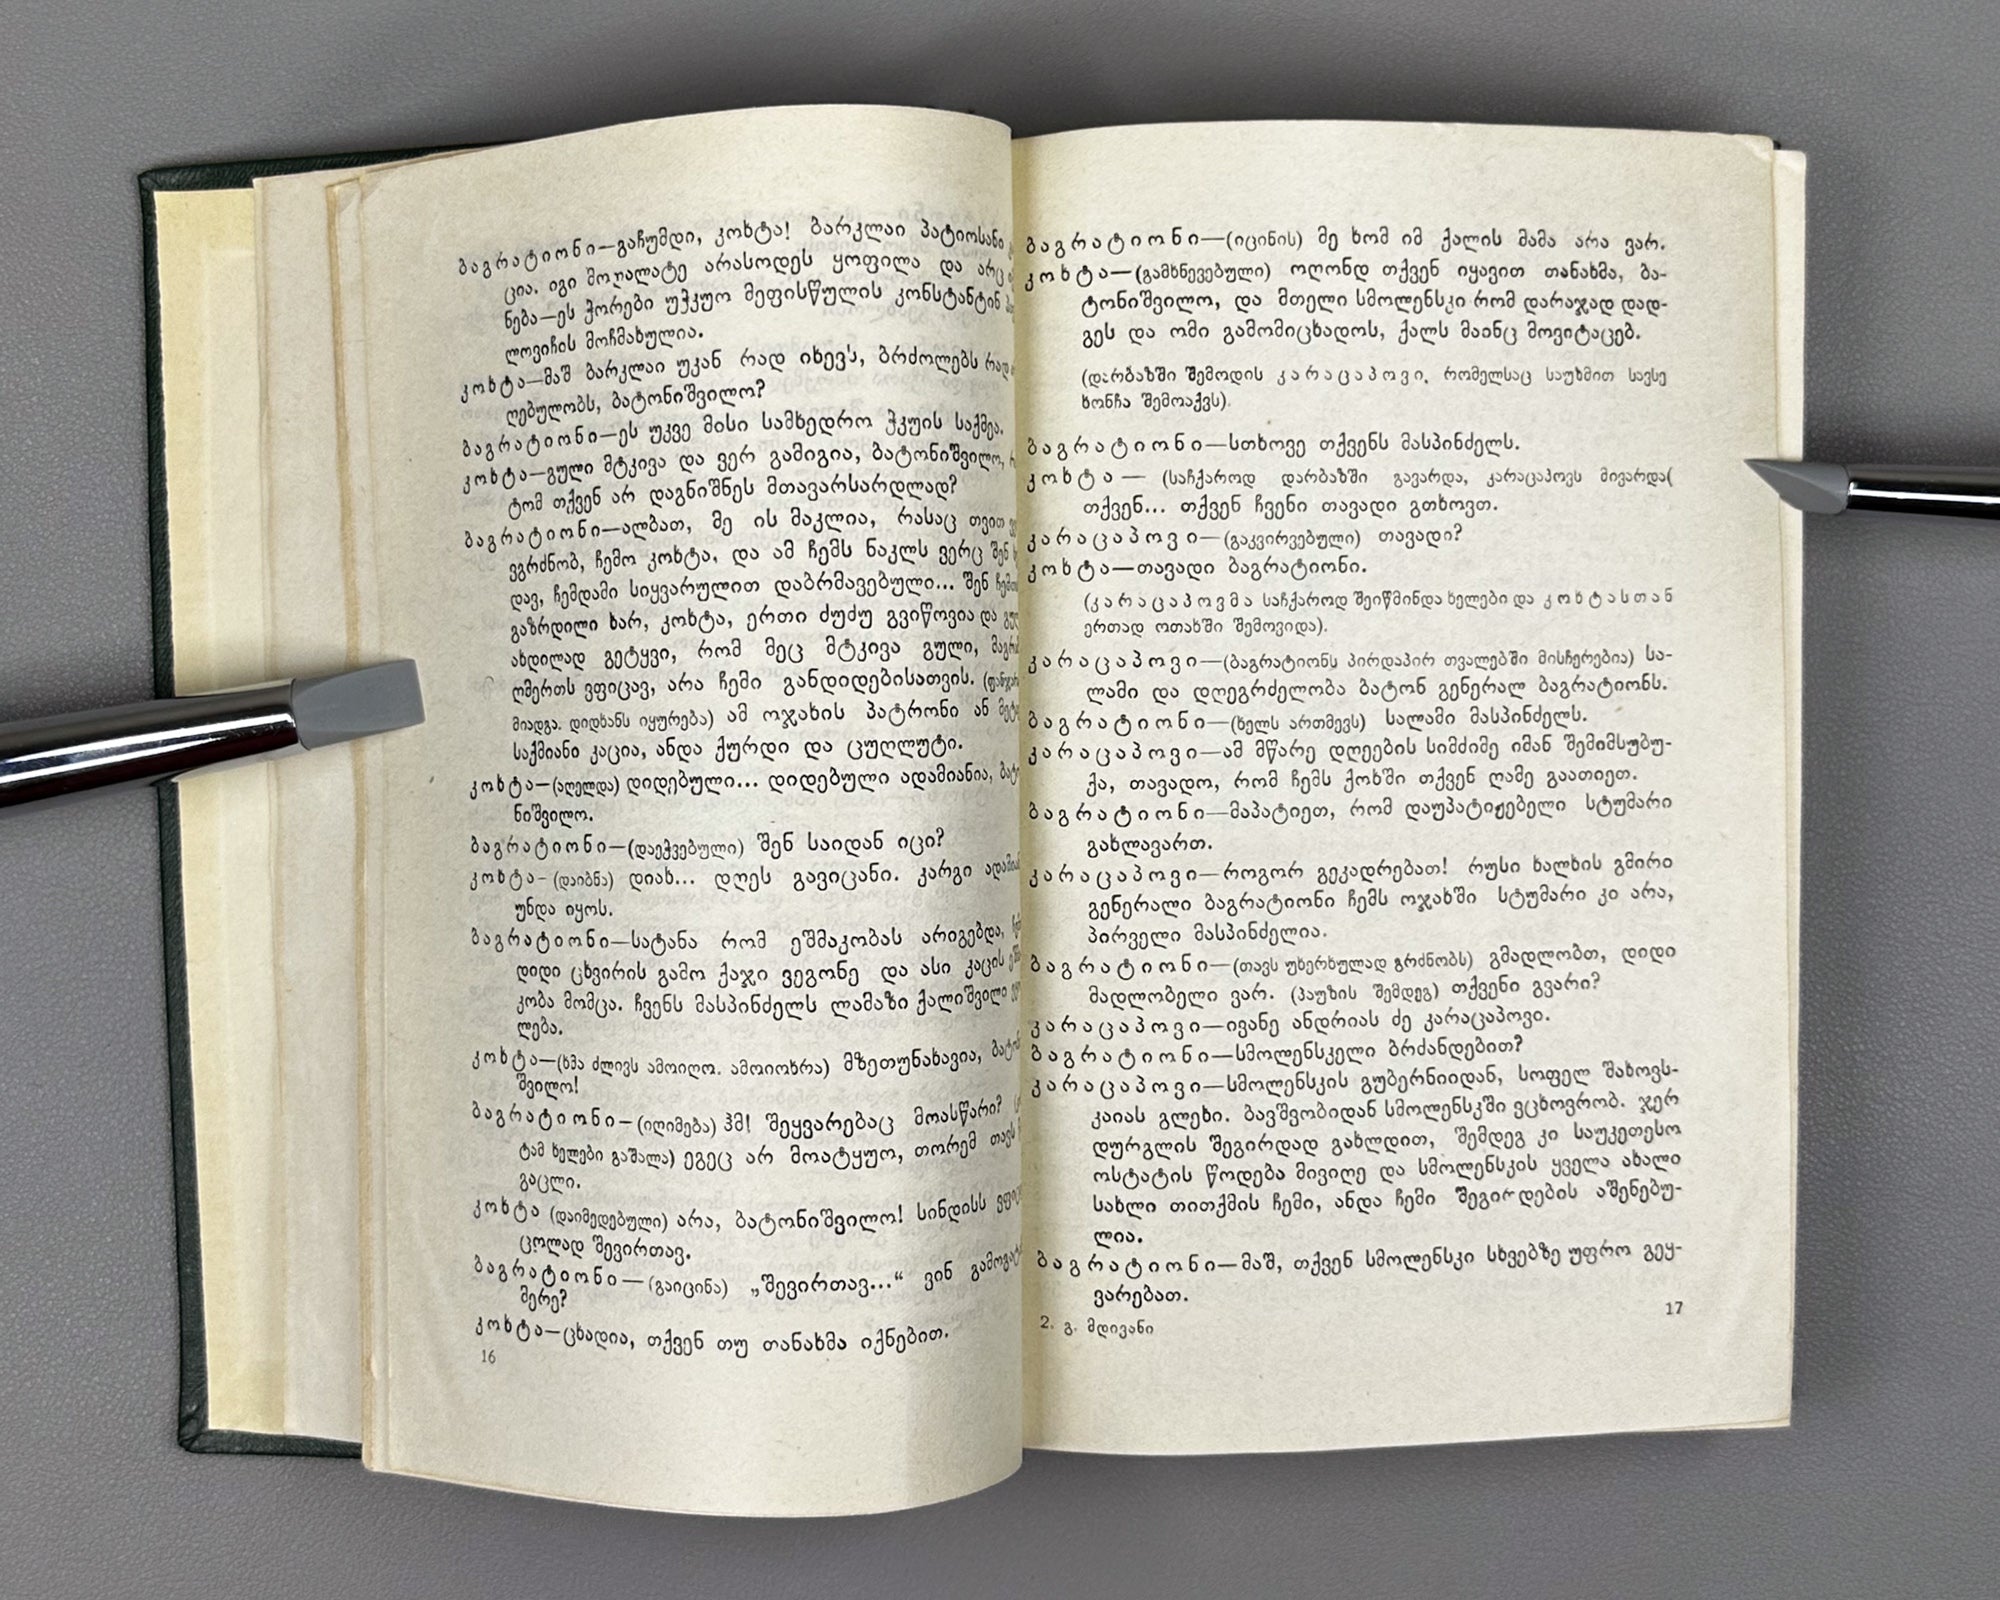 ბაგრატიონი—გაჩუმდი, კოხტა! ბარკლაი პატიოსანი
ცია. იგი მოღალატე არასოდეს ყოფილა და არც
ნება—ეს ჭორები უჭკუო მეფისწულის კონსტანტინ
ლოვიჩის მოჩმახულია.
კოხტა—მაშ ბარკლაი უკან რად იხევს, ბრძოლებს რად
ღებულობს, ბატონიშვილო?
ბაგრატიონი—ეს უკვე მისი სამხედრო ჭკუის საქმეა.
კოხტა—გული მტკივა და ვერ გამიგია, ბატონიშვილო,
ტომ თქვენ არ დაგნიშნეს მთავარსარდლად?
ბაგრატიონი—ალბათ, მე ის მაკლია, რასაც თვით
ვგრძნობ, ჩემო კოხტა, და ამ ჩემს ნაკლს ვერც შენ
დავ, ჩემდამი სიყვარულით დაბრმავებული... შენ
გაზრდილი ხარ, კოხტა, ერთი ძუძუ გვიწოვია და
ახდილად გეტყვი, რომ მეც მტკივა გული,
ღმერთს ვფიცავ, არა ჩემი განდიდებისათვის.
მიადგა. დიდხანს იყურება) ამ ოჯახის პატრონი ან
საქმიანი კაცია, ანდა ქურდი და ცუღლუტი.
კოხტა—(აღელდა) დიდებული... დიდებული ადამიანია,
ნიშვილო.
ბაგრატიონი—(დაეჭვებული) შენ საიდან იცი?
კოხტა—(დაიბნა) დიახ... დღეს გავიცანი. კარგი
უნდა იყოს.
ბაგრატიონი—სატანა რომ ეშმაკობას არიგებდა,
დიდი ცხვირის გამო ქაჯი ვეგონე და ასი კაცის
კობა მომცა. ჩვენს მასპინძელს ლამაზი ქალიშვილი
ლება.
კოხტა—(ხმა ძლივს ამოიღო. ამოიოხრა) მზეთუნახავია,
შვილო!
ბაგრატიონი—(იღიმება) ჰმ! შეყვარებაც მოასწარი?
ტამ ხელები გაშალა) ეგეც არ მოატყუო, თორემ თავს
გაცლი.
კოხტა (დაიმედებული) არა, ბატონიშვილო! სინდისს
ცოლად შევირთავ.
ბაგრატიონი—(გაიცინა) „შევირთავ...“ ვინ
მერე?
კოხტა—ცხადია, თქვენ თუ თანახმა იქნებით.
16
ბაგრატიონი—(იცინის) მე ხომ იმ ქალის მამა არა ვარ.
კოხტა—(გამხნევებული) ოღონდ თქვენ იყავით თანახმა, ბა-
ტონიშვილო, და მთელი სმოლენსკი რომ დარაჯად დად-
გეს და ომი გამომიცხადოს, ქალს მაინც მოვიტაცებ.
(დარბაზში შემოდის კარაცაპოვი, რომელსაც საუზმით სავსე
ხონჩა შემოაქვს).
ბაგრატიონი—სთხოვე თქვენს მასპინძელს.
კოხტა— (საჩქაროდ დარბაზში გავარდა, კარაცაპოვს მივარდა(
თქვენ... თქვენ ჩვენი თავადი გთხოვთ.
კარაცაპოვი—(გაკვირვებული) თავადი?
კოხტა—თავადი ბაგრატიონი.
(კარაცაპოვმა საჩქაროდ შეიწმინდა ხელები და კოხტასთან
ერთად ოთახში შემოვიდა).
კარაცაპოვი—(ბაგრატიონს პირდაპირ თვალებში მისჩერებია) სა-
ლამი და დღეგრძელობა ბატონ გენერალ ბაგრატიონს.
ბაგრატიონი—(ხელს ართმევს) სალამი მასპინძელს.
კარაცაპოვი—ამ მწარე დღეების სიმძიმე იმან შემიმსუბუ-
ქა, თავადო, რომ ჩემს ქოხში თქვენ ღამე გაათიეთ.
ბაგრატიონი—მაპატიეთ, რომ დაუპატიჟებელი სტუმარი
გახლავართ.
კარაცაპოვი—როგორ გეკადრებათ! რუსი ხალხის გმირი
გენერალი ბაგრატიონი ჩემს ოჯახში სტუმარი კი არა,
პირველი მასპინძელია.
ბაგრატიონი—(თავს უხერხულად გრძნობს) გმადლობთ, დიდი
მადლობელი ვარ. (პაუზის შემდეგ) თქვენი გვარი?
კარაცაპოვი—ივანე ანდრიას ძე კარაცაპოვი.
ბაგრატიონი—სმოლენსკელი ბრძანდებით?
კარაცაპოვი—სმოლენსკის გუბერნიიდან, სოფელ შახოვს-
კაიას გლეხი. ბავშვობიდან სმოლენსკში ვცხოვრობ. ჯერ
დურგლის შეგირდად გახლდით, შემდეგ კი საუკეთესო
ოსტატის წოდება მივიღე და სმოლენსკის ყველა ახალი
სახლი თითქმის ჩემი, ანდა ჩემი შეგირდების აშენებუ-
ლია.
ბაგრატიონი—მაშ, თქვენ სმოლენსკი სხვებზე უფრო გეყ-
ვარებათ.
2. გ. მდივანი
17